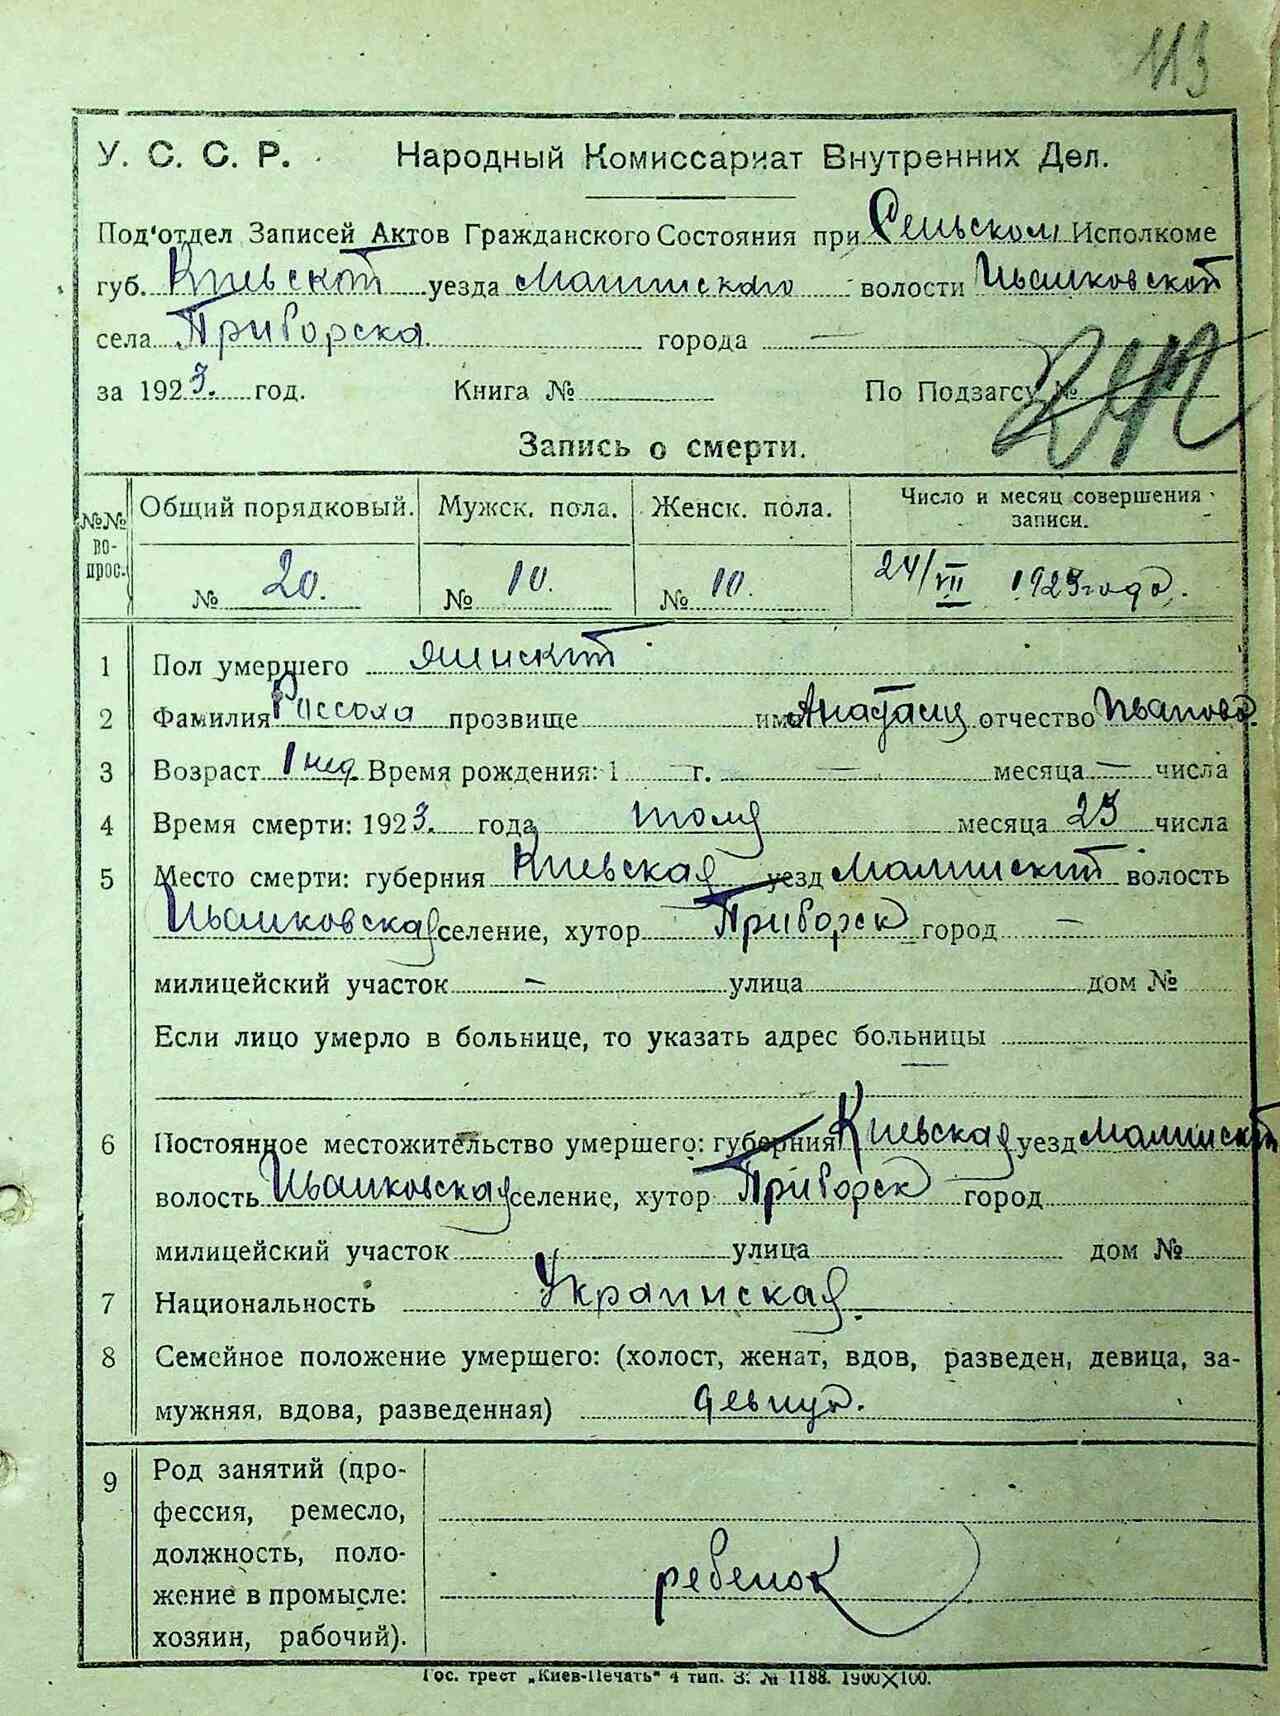 113
У. С. С. Р. Народный Комиссариат Внутренних Дел.
Под'отдел Записей Актов Гражданского Состояния при Сельском Исполкоме
губ. Киевской уезда Малинского волости Иванковской
села Приборска города —
за 1923. год. Книга № По Подзагсу №
Запись о смерти.
№№ вопрос. Общий порядковый. Мужск. пола. Женск. пола. Число и месяц совершения записи.
№ 20. № 10. № 10. 24/VII 1923 года.
1 Пол умершего женский
2 Фамилия Рассоха прозвище имя отчество Иванова
3 Возраст 1 нед. Время рождения: 1 г. — месяца — числа
4 Время смерти: 1923. года июля месяца 23 числа
5 Место смерти: губерния Киевская уезд Малинский волость
Иванковская селение, хутор Приборск город —
милицейский участок — улица дом №
Если лицо умерло в больнице, то указать адрес больницы
—
6 Постоянное местожительство умершего: губерния Киевская уезд Малинский
волость Иванковская селение, хутор Приборск город
милицейский участок улица дом №
7 Национальность Украинская.
8 Семейное положение умершего: (холост, женат, вдов, разведен, девица, за-
мужняя, вдова, разведенная) девица.
9 Род занятий (про-
фессия, ремесло,
должность, поло-
жение в промысле:
хозяин, рабочий).
ребенок
Гос. трест „Киев-Печать" 4 тип. З. № 1188. 1900×100.